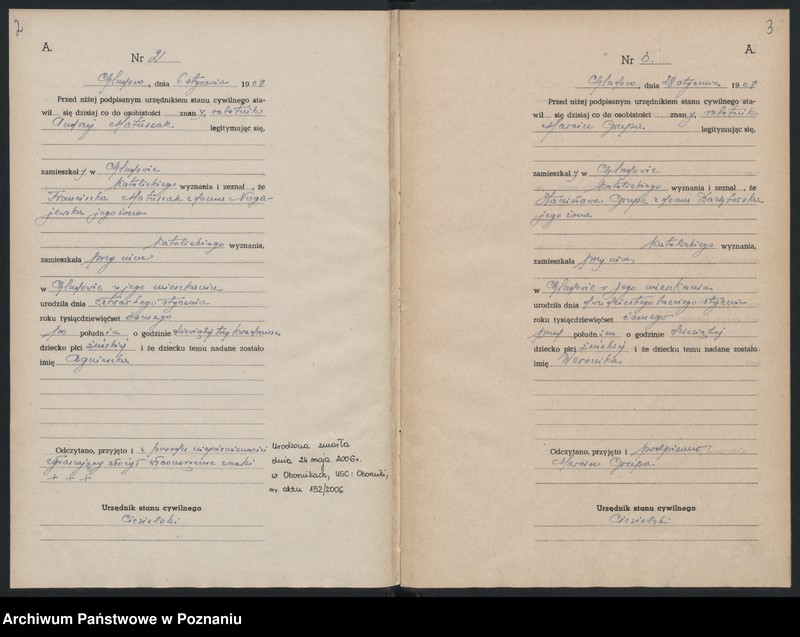 2
A.
Nr 2
, dnia 6 stycznia 1908
Przed niżej podpisanym urzędnikiem stanu cywilnego sta-
wił się dzisiaj co do osobistości znany, robotnik
Andrzej Matuszak legitymując się,
zamieszkały w
katolickiego wyznania i zeznał, że
Franciszka Matuszak z domu Noga-
jewska jego żona
katolickiego wyznania,
zamieszkała przy nim
w w jego mieszkaniu
urodziła dnia czwartego stycznia
roku tysiącdziewięćset ósmego
po południu o godzinie dziewiątej trzy kwadranse
dziecko płci żeńskiej i że dziecku temu nadane zostało
imię Agnieszka
Odczytano, przyjęto i z powodu niepiśmienności
zgłaszający złożył własnoręczne znaki
+ + +
Urodzona zmarła
dnia 24 maja 2006r.
w Obornikach, USC: Oborniki,
nr aktu 152/2006
Urzędnik stanu cywilnego
Ciesielski
3
A.
Nr 3.
, dnia 28 stycznia 1908
Przed niżej podpisanym urzędnikiem stanu cywilnego sta-
wił się dzisiaj co do osobistości znany, robotnik
Marcin legitymując się,
zamieszkały w
katolickiego wyznania i zeznał, że
Stanisława z domu
jego żona
katolickiego wyznania,
zamieszkała przy nim
w w jego mieszkaniu
urodziła dnia dwudziestego trzeciego stycznia
roku tysiącdziewięćset ósmego
przed południem o godzinie dziewiątej
dziecko płci żeńskiej i że dziecku temu nadane zostało
imię Weronika
Odczytano, przyjęto i podpisano
Marcin
Urzędnik stanu cywilnego
Ciesielski
Archiwum Państwowe w Poznaniu